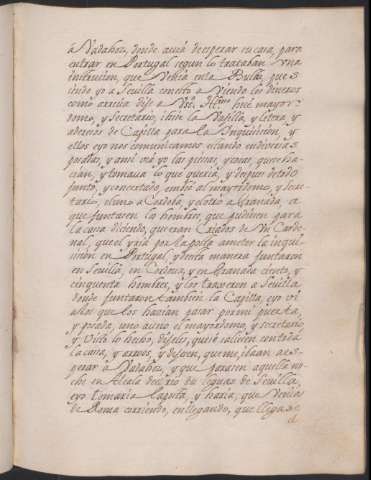 a Vadahoz, donde auia de esperar en casa, para
entrar en Portugal segun lo trataban Vna
instrucion, que Vehia en la Bulas, que
siendo yo a Seuilla con esto a Viendo los dineros
como arriua dije a
domo, y secretario, iban la Vajilla, y letera, y
adereços de Capilla para la Inquisicion, y
ellos e yo nos comunicamos estando en diuersas
posadas, y ami oia yo las pieças, y cosas, que se ha
cian, y tomaua lo que queria, y despues de todo
junto, y concertado, embie al mayordomo, y secre
tario, el uno a Cordoba, y el otro a Granada, a
que juntasen la hombres, que pudiesen para
la casa diciendo, que eran Criados de Vn Carde
nal, que el Yria por la posta a meter la inqui
sicion en Portugal, y desta manera juntaron
en Seuilla, en Cordoua, y en Granada ciento, y
cinquenta hombres, y los traxeron a Seuilla
donde juntaron tambien la Capilla, e yo vi
a los que los hacian pasar por mi puerta,
y posada, uno a uno el mayordomo, y secretario,
y Visto lo hecho, dijeles, que se saliesen con toda
la casa, y arreos, y dijesen, que me ibaan a es
perar a Vadahoz, y que parasen aquella no
che en Alcala del rio dos leguas de Seuilla,
e yo tomaria la posta, y haria, que Venia
de Roma corriendo, en llegando, que llegase